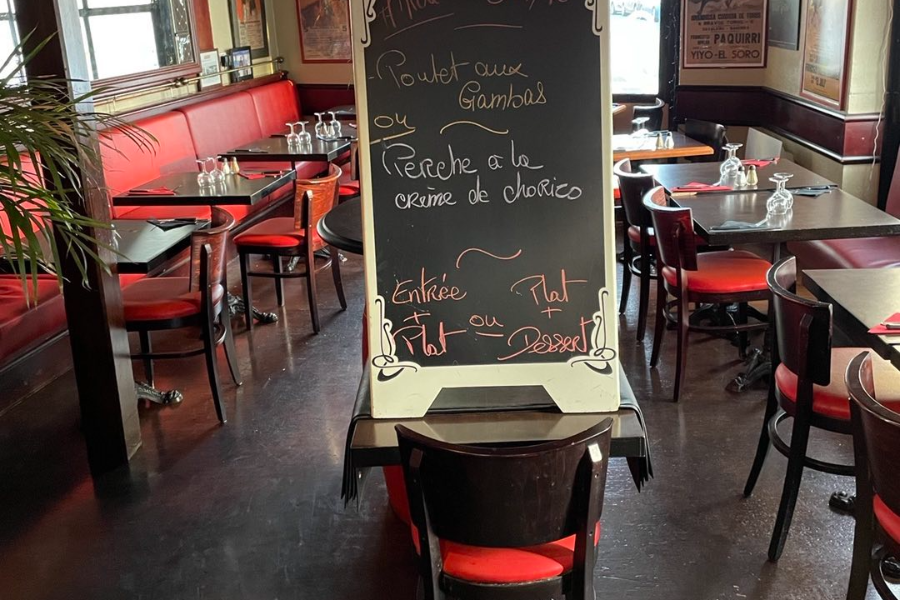 Poulet aux
Gambas
ou
Perche a la
crème de chorizo
Entrée Plat
+ ou +
Plat Dessert
PAQUIRRI
YIYO-EL SORO